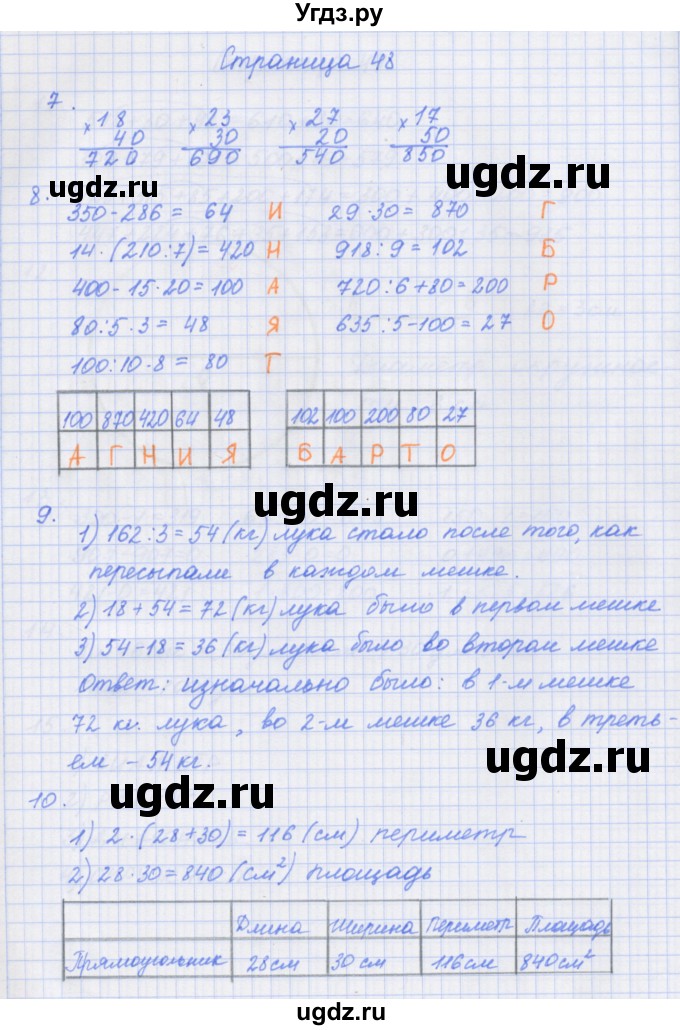 Угдз.ру
Страница 48
7.
×18 ×23 ×27 ×17
40 30 20 50
720 690 540 850
ugdz.ru ugdz.ru
8.
350-286= 64 И 29·30= 870 Г
14·(210:7)=420 Н 918:9=102 Б
400-15·20=100 А 720:6+80=200 Р
80:5·3= 48 Я 635:5-100=27 О
100:10·8= 80 Т
100 870 420 64 48 102 100 200 80 27
А Г Н И Я Б А Р Т О
ugdz.ru
9.
1) 162:3=54(кг) лука стало после того, как
пересыпали в каждом мешке.
ugdz.ru
2) 18+54=72(кг) лука было в первом мешке
3) 54-18=36(кг) лука было во втором мешке
Ответ: изначально было: в 1-м мешке
72 кг. лука, во 2-м мешке 36 кг, в треть-
ем - 54кг.
ugdz.ru
ugdz.ru
10.
1) 2·(28+30)=116(см) периметр
2) 28·30=840(см²) площадь
Длина Ширина Периметр Площадь
Прямоугольник 28см 30см 116см 840см²
ugdz.ru